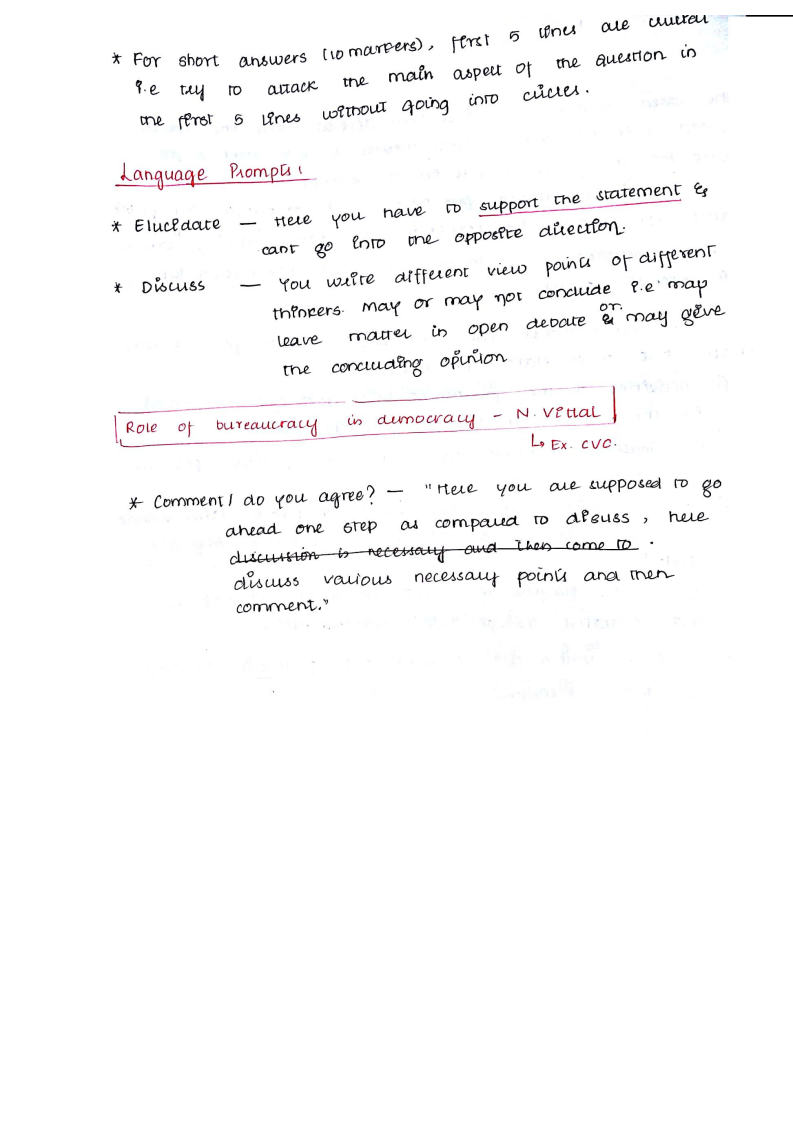 * For short answers (10 markers), first 5 lines are critical
i.e try to attack the main aspect of the question in
the first 5 lines without going into circles.
Language Prompts:
* Elucidate — Here you have to support the statement &
cant go into the opposite direction.
* Discuss — You write different view points of different
thinkers. May or may not conclude i.e map
or.
leave matter in open debate & may give
the concluding opinion
Role of bureaucracy in democracy - N. Vittal
↳ Ex. CVC.
* Comment / do you agree? — "Here you are supposed to go
ahead one step as compared to discuss, here
discussion is necessary and then come to.
discuss various necessary points and then
comment."